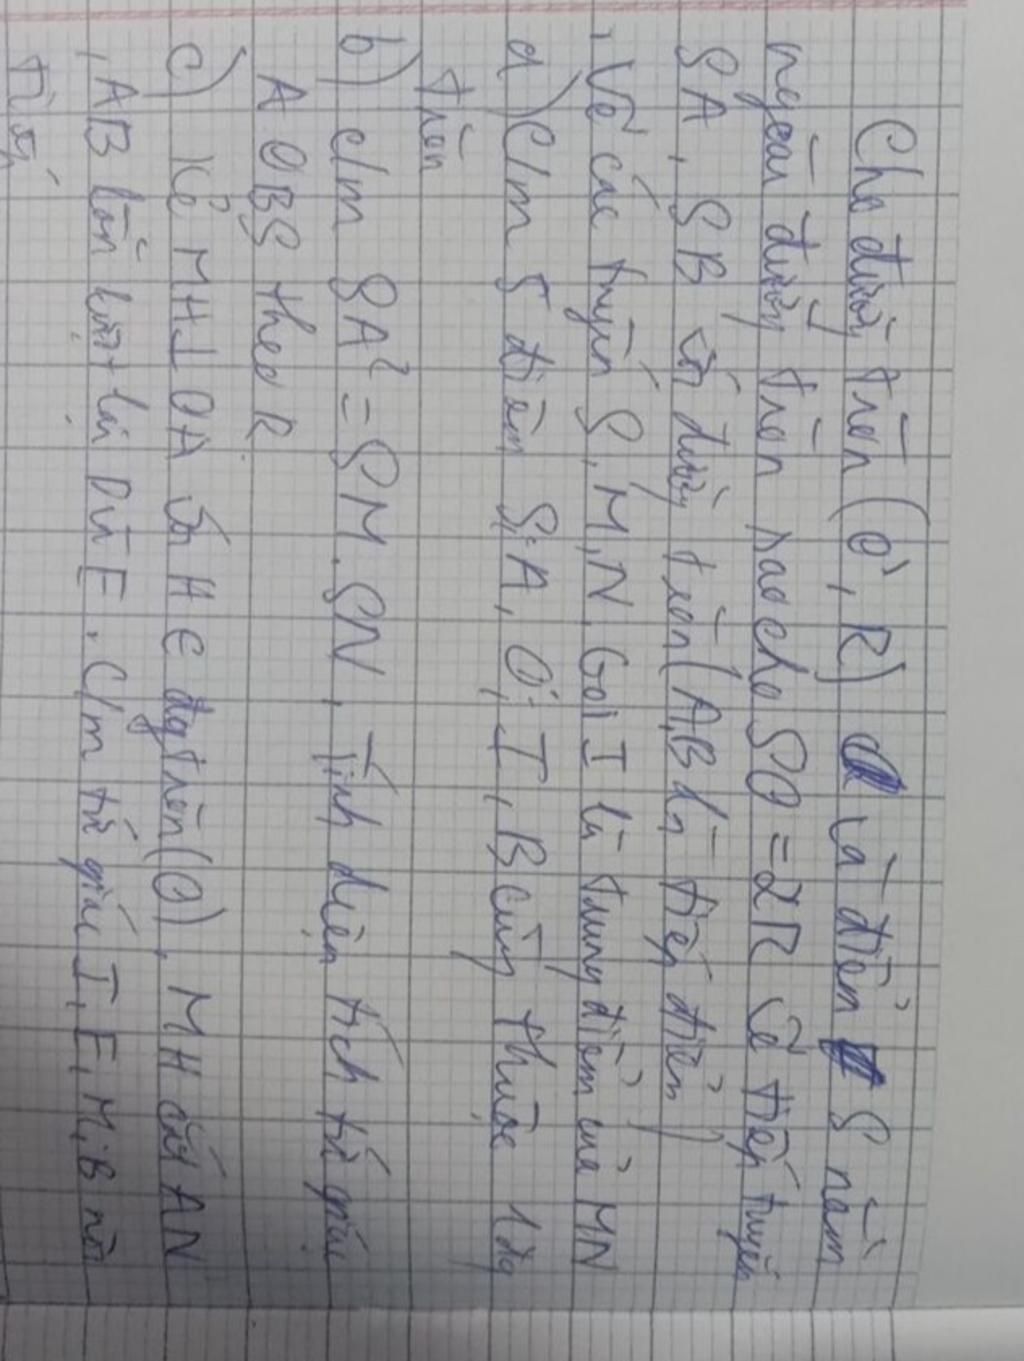 Cho đường tròn (O, R) là điểm S nằm
ngoài đường tròn sao cho SO = 2R vẽ tiếp tuyến
SA, SB với đường tròn (A, B là tiếp điểm)
, vẽ cát tuyến S, M, N. Gọi I là trung điểm của MN
a) C/m 5 điểm S, A, O, I, B cùng thuộc 1 đg
tròn
b) c/m SA² = SM.SN, Tính diện tích tứ giác
A OBS theo R
c) Kẻ MH ⊥ OA với H ∈ đg tròn (O), MH cắt AN
, AB lần lượt tại D và E. C/m tứ giác I, E, M, B nội
tiếp